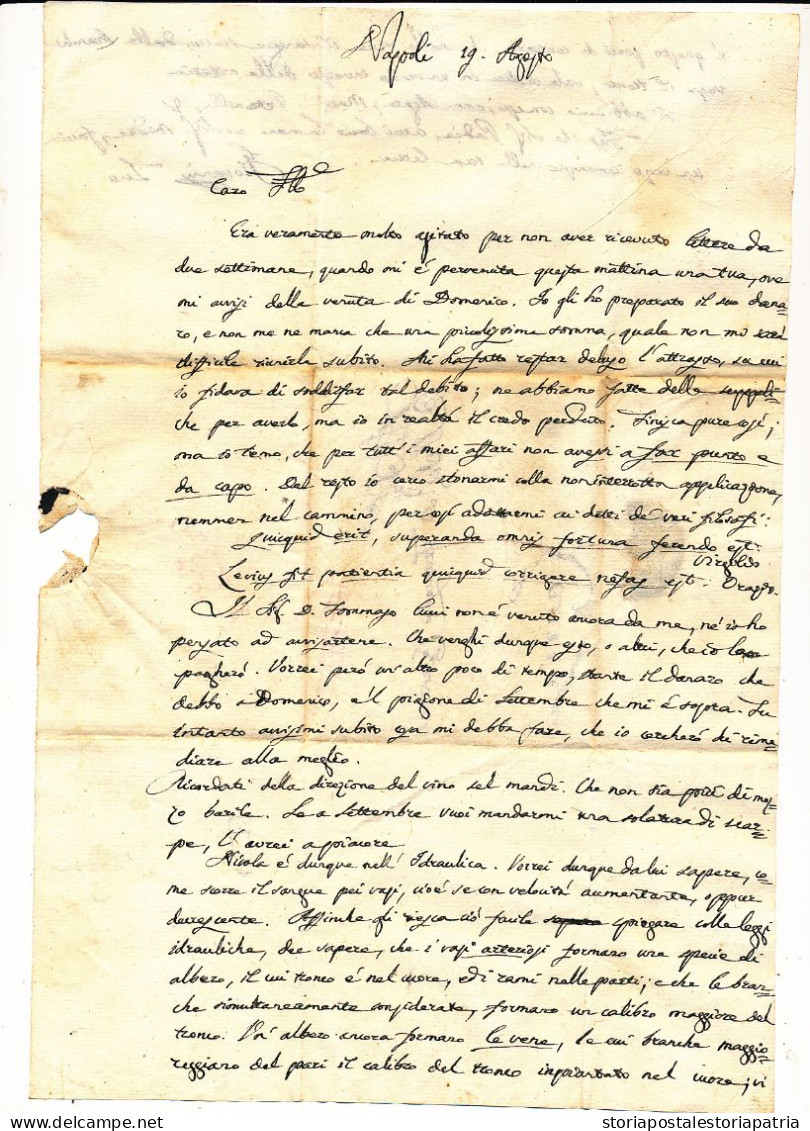 Napoli 19. Agosto
Caro
Era veramente molto agitato per non aver ricevuto lettere da
due settimane, quando mi é pervenuta questa mattina una tua, ove
mi avvisi della venuta di Domenico. Io gli ho preparato il suo dana=
ro, e non me ne manca che una piccolissima somma, quale non mi sará
difficile riunirla subito. Mi ha fatto restar deluso l'attrasso, su cui
io fidava di soddisfar tal debito; ne abbiamo fatte delle suppli=
che per averlo, ma io in realtá il credo perduto. Finisca pure cosí;
ma io temo, che per tutt'i miei affari non avessi a far punto e
da capo. Del resto io cerco stonarmi colla non interrotta applicazione,
nemmen nel cammino, per cosí adattarmi ai detti de' veri filosofi:
Quicquid erit, superanda omnis fortura ferendo est. Virgilio
Levius fit patientia quicquid corrigere nefas est. Orazio.
Il Sig. D. Tommaso non é venuto ancora da me, né io ho
pensato ad avvisartene. Che venghi dunque esso, o altri, che io lo
pagheró. Vorrei peró un altro poco di tempo, stante il danaro che
debbo a Domenico, e'l pigione di Settembre che mi é sopra. Tu
intanto avvisimi subito cosa mi debba fare, che io cercheró di rime=
diare alla meglio.
Ricordati della direzione del vino se'l mandi. Che non sia piú di mez=
zo barile. Se a settembre vuoi mandarmi una solatura di scar=
pe, l'avrei a piacere
Nicola é dunque nell'Idraulica. Vorrei dunque da lui sapere, co=
me scorre il sangue pei vasi, cioé se con velocitá aumentante, oppur
decrescente. Affinche gli riesca ció facile spiegare colle leggi
idrauliche, dee sapere, che i vasi arteriosi formano una specie di
albero, il cui tronco é nel cuore, ed i rami nelle parti; e che le bran=
che simultaneamente considerate, formano un calibro maggiore del
tronco. Un' albero ancora formano le vene, le cui branche maggio=
reggiano del pari il calibro del tronco impiantato nel cuore; vi
storiapostalestoriapatria